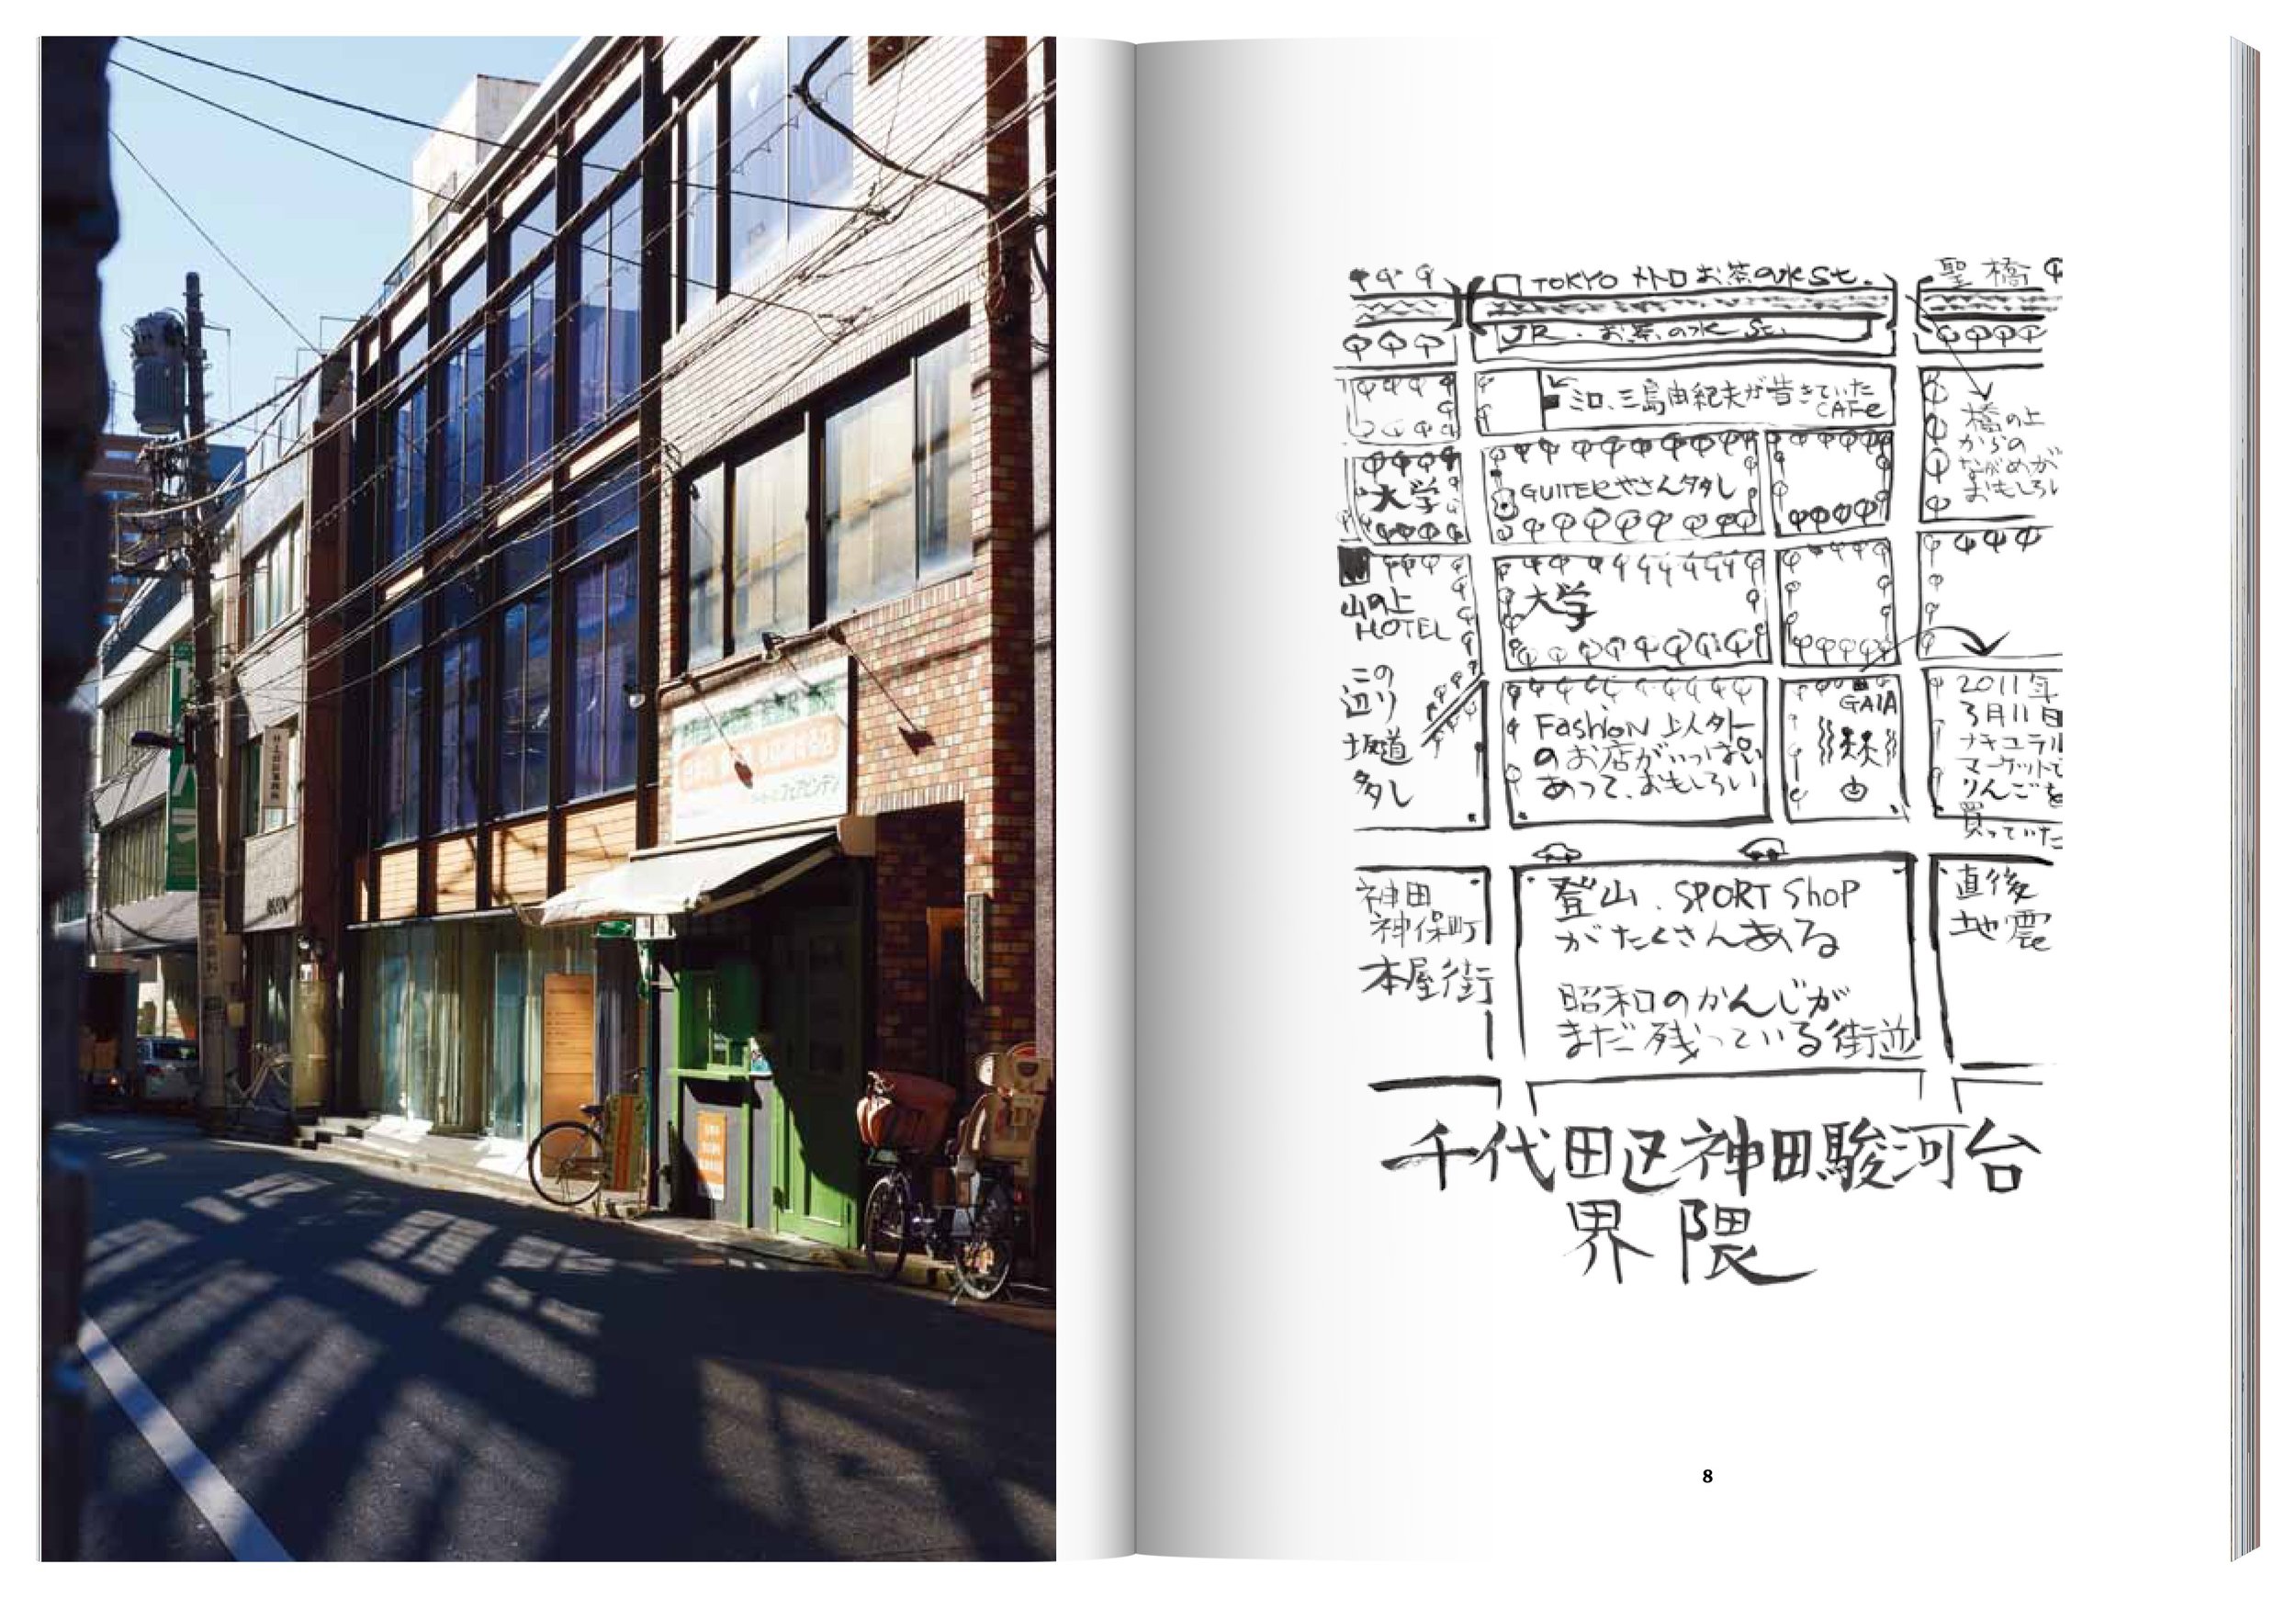 フェアビンデン
TOKYO メトロ お茶の水 St.
聖橋
JR. お茶の水 St.
ミロ、三島由紀夫が昔きていた
CAFe
橋の上
からの
ながめが
おもしろい
大学
GUITERやさん多し
山の上
HOTEL
大学
この
辺り
坂道
多し
Fashion 以外
のお店がいっぱい
あって、おもしろい
GAIA
2011年
3月11日
ナチュラル
マーケットで
りんごを
買っていた
直後
地震
神田
神保町
本屋街
登山、SPORT ShoP
がたくさんある
昭和のかんじが
まだ残っている街並
千代田区神田駿河台
界隈
8